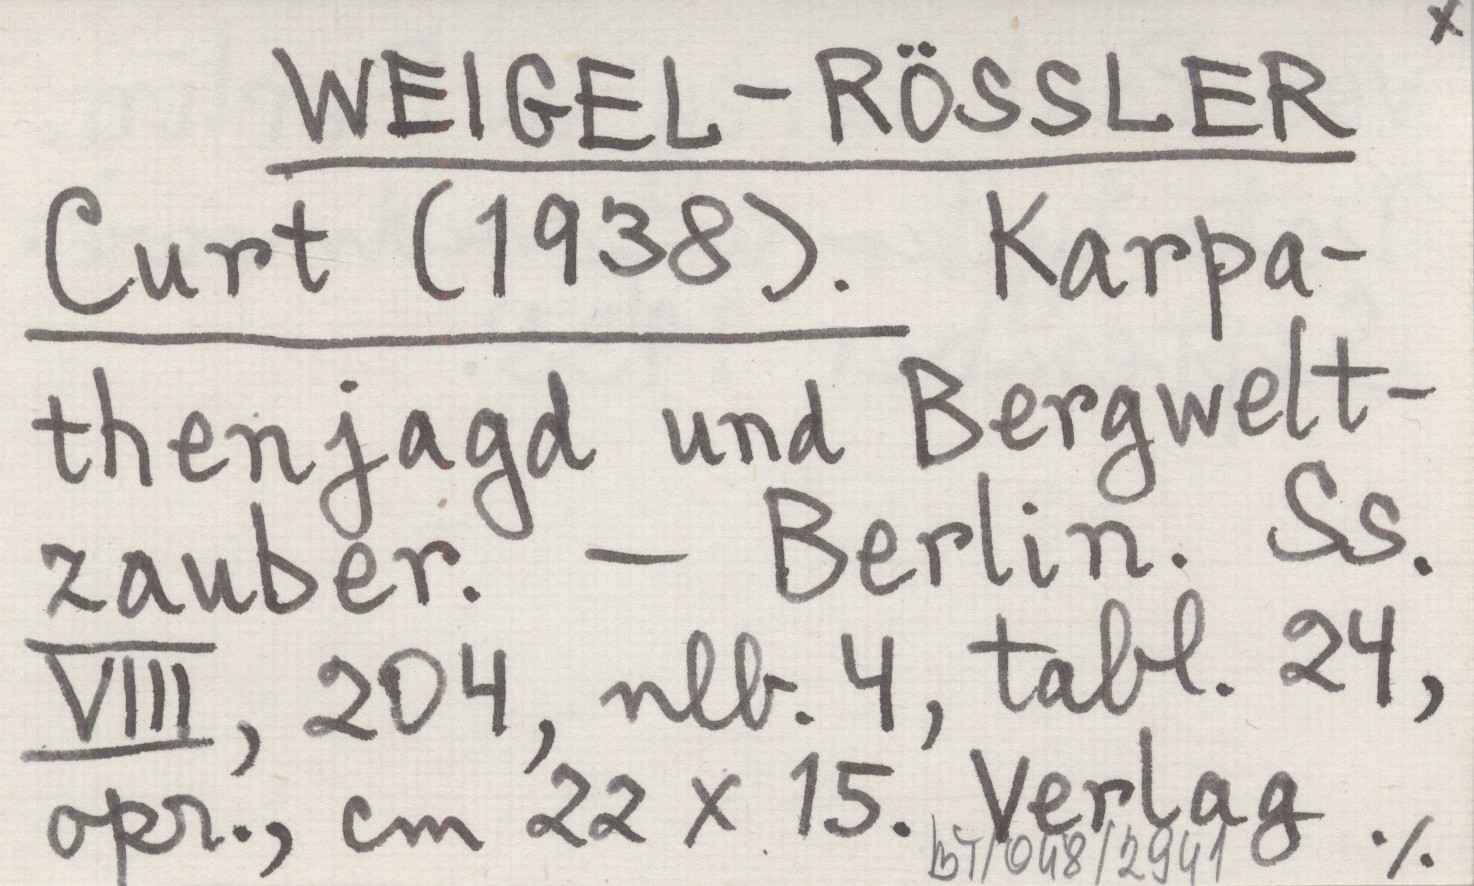 x
WEIGEL-RÖSSLER
Curt (1938). Karpa-
thenjagd und Bergwelt-
zauber. — Berlin. Ss.
VIII, 204, nlb. 4, tabl. 24,
opr., cm 22 x 15. Verlag ./.
BT/048/2941